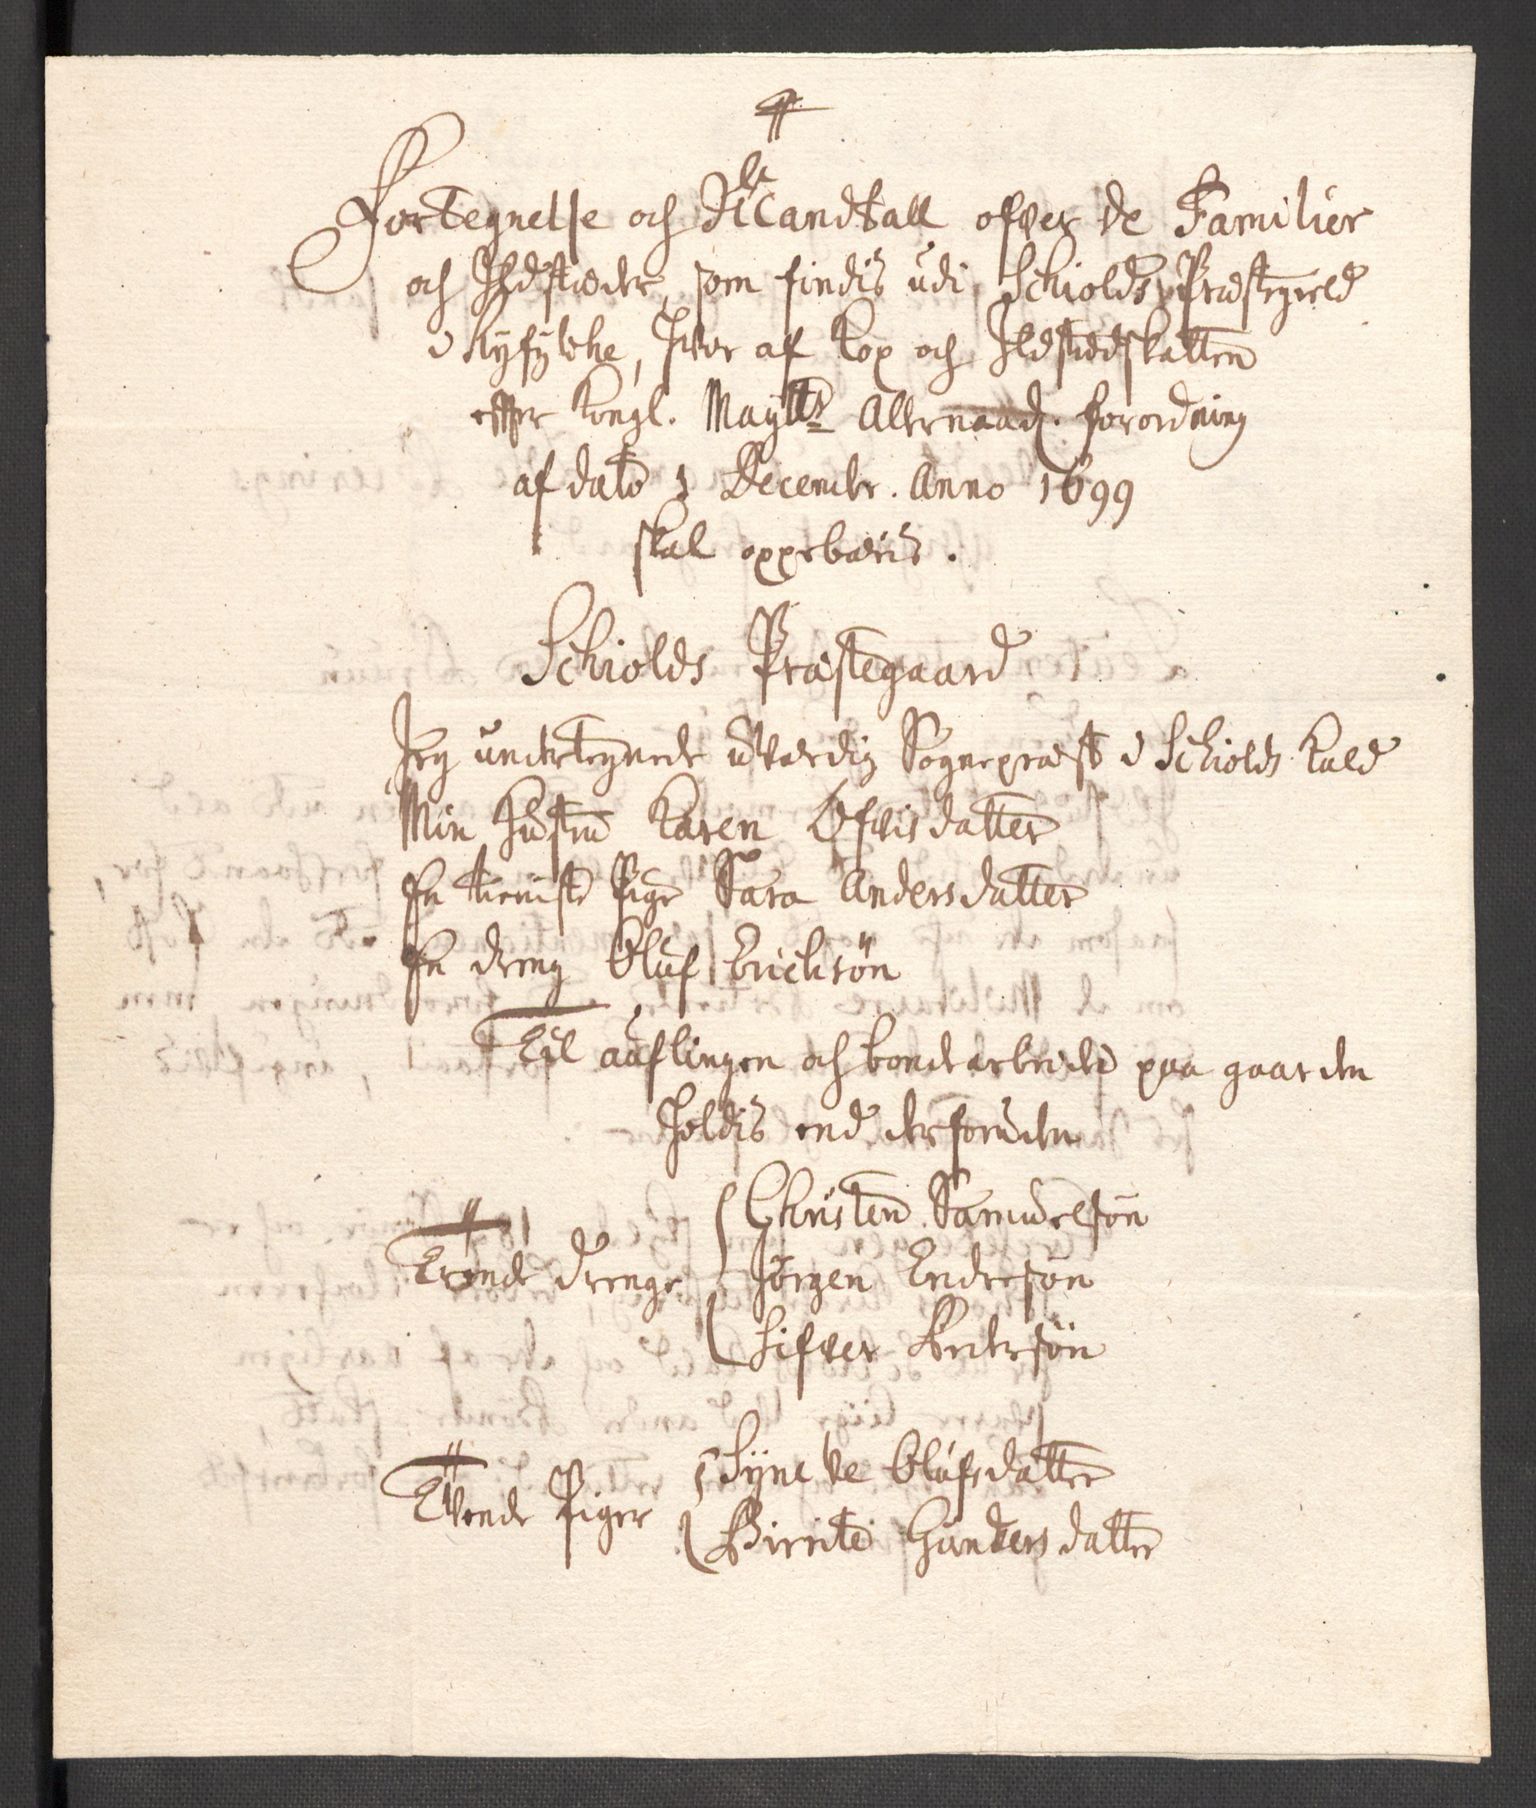 Fortegnelse och Mandtall ofver de Familier
och Ildstæder, som findis udi Schiolds Præstegield
i Ryfylche, hvor af Kop och Ildstedskatten
efter Kongl. Maytts Allernaad. forordning
af dato 1 Decembr. Anno 1699
skal oppebæris.
Schiolds Præstegaard
Jeg undertegnede uværdig Sognepræst i Schiolds Kald
Min Hustru Karen Ofvisdatter
En tieniste Pige Sara Andersdatter
En dreng Oluf Erichsøn
Til auflingen och bondearbeide paa gaarden
holdis end derforuden
Trende drenge
Christen Samuelsøn
Jørgen Endresøn
Sifver Pedersøn
Tvende Piger
Syneve Olufsdatter
Birrite Gundersdatter